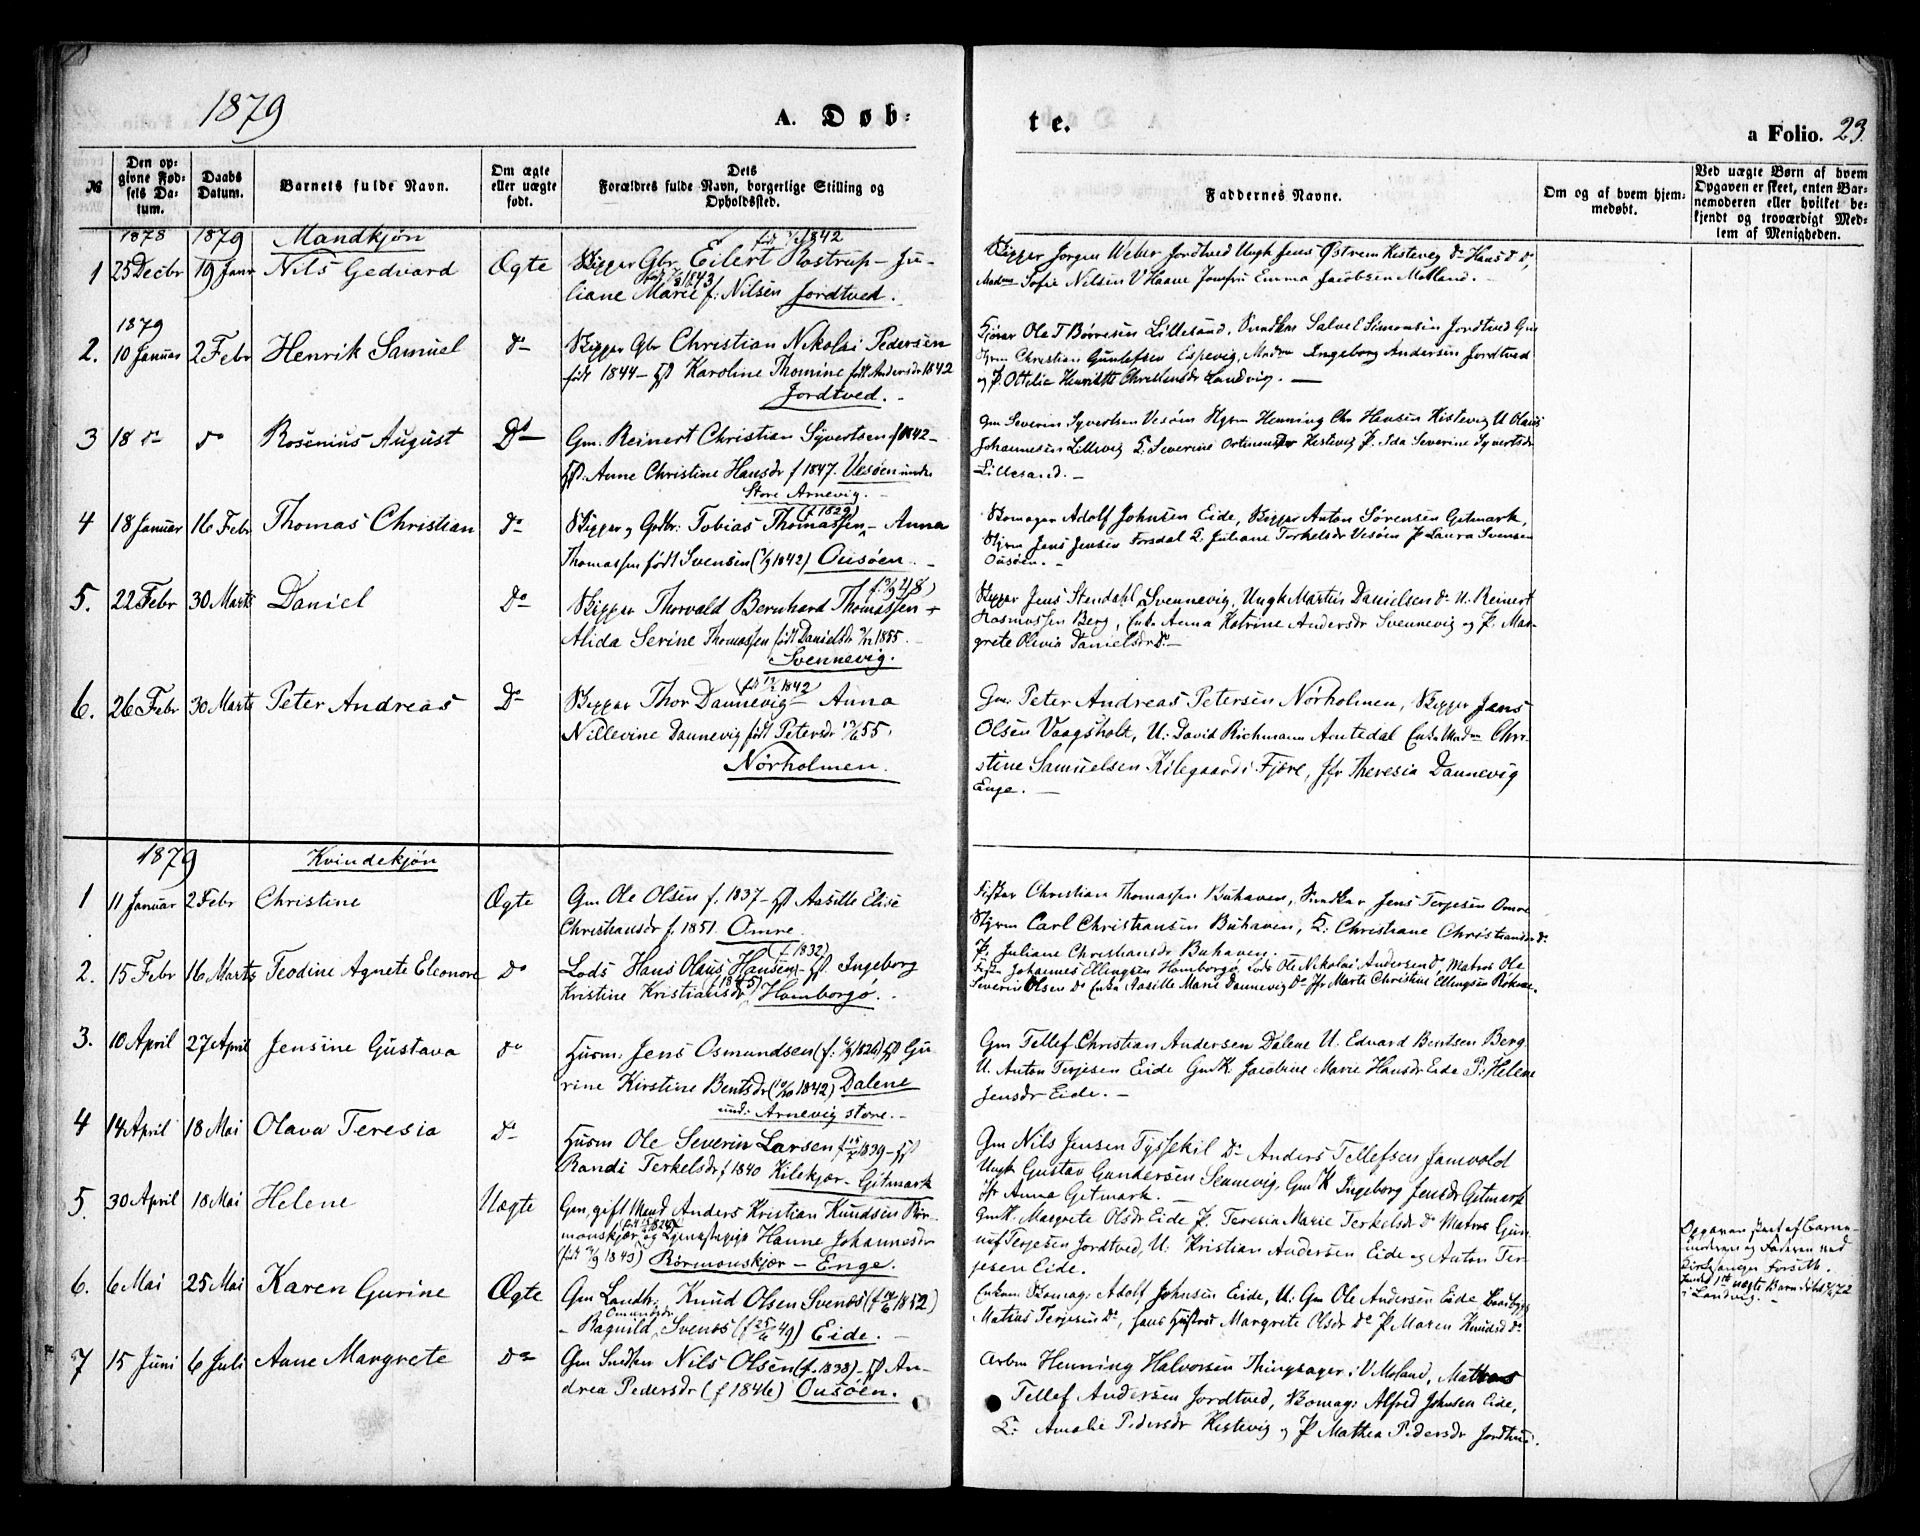 1879
A. Døb-
te.
a Folio. 23.
№
Den opgivne Fødsels Datum.
Daabs Datum.
Barnets fulde Navn.
Om ægte eller uægte født.
Dets Forældres fulde Navn, borgerlige Stilling og Opholdssted.
Faddernes Navne.
Om og af hvem hjemmedøbt.
Ved uægte Børn af hvem Opgaven er skeet, enten Barnemoderen eller hvilket bekjendt og troværdigt Medlem af Menigheden.
1878 1879 Mandkjøn
1 25 Decbr 19 Janr Nils Gedvard Ægte Skipper Gbr. Eilert Rostrup - Ju-
liane Marie f: Nilsen Jordtved.
Skipper Jørgen Weber Jordtved Ungk Jens Østrem Kistevig Do Hans Do Do,
Madme Sofie Nilsen V Haave Jomfru Emma Jacobsen Molland.
1879
2. 10 Januar 2 Febr Henrik Samuel Do Skipper Gbr Christian Nikolai Pedersen
født 1844 - Karoline Thomine født Andersdr 1842
Jordtved.
Ole T Børresen Lillesand, Salve E Simonsen Jordtved
Styrm Christian Guntefsen Espevig, Madm Ingeborg Andersen Jordtved
og P. Ottilia Henriette Landvig.
3 18 do do Rosenius August Do Gm. Reinert Christian Syvertsen f 1842 -
Anne Christine Hansdr f 1847. Vesøen under
Store Arnevig.
Gm Severin Syvertsen Vesøen Styrm Henning Chr Hansen Kistevig U Olaus
Johannesen Lillevig K. Severine Kistevig P. Ida Severine Syvertsdr
Lillesand.
4 18 Januar 16 Febr Thomas Christian Do Skipper og Gdbr: Tobias Thomassen (f 1829) - Anna
Thomassen født Svensen (1842) Ousøen.
Adolf Johnsen Eide, Skipper Anton Sørensen Gitmark,
Styrm Jens Jensen Forsdal K. Juliane Torkelsdr Vesøen P Laura Svensen
Ousøen.
5. 22 Febr 30 Marts Daniel Do Skipper Thorvald Bernhard Thomassen +
Alida Serine Thomassen født Danielsdr 1855.
Svennevig.
Skipper Jens Stendahl Svennevig, Ungk Martin Danielsen Do U. Reinert
Rasmussen Berg, Enke Anna Katrine Andersdr Svennevig og P. Mar-
grete Olevia Danielsdr Do
6. 26 Febr 30 Marts Peter Andreas Do Skipper Thor Dannevig 1842 Anna
Nillevine Dannevig født Petersdr 55.
Nørholmen.
Gm. Peter Andreas Petersen Nørholmen, Skipper Jens
Olsen Vaagsholt, U: David Richmann Arntedal Enke Madm Chri-
stine Samuelsen Kilegaard i Fjære, Jfr Theresia Dannevig
Enge.
1879 Kvindekjøn
1 11 Januar 2 Febr Christine Ægte Gm Ole Olsen f. 1837 - Aasille Elise
Christiansdr f. 1851. Omre.
Christian Thomassen Buhaven, Jens Terjesen Omre
Styrm Carl Christiansen Buhaven, K. Christiane Christiansdr Do
P. Juliane Christiansdr Buhaven.
2. 15 Febr 16 Marts Teodine Agnete Eleonore Do Lods Hans Olaus Hansen (f. 1832) - Ingeborg
Kristine Kristiansdr (1845) Homborgø.
Johannes Ellingsen Homborgø, Lods Ole Nikolai Andersen Do, Matros Ole
Severin Olsen Do Enke Aasille Marie Dannevig Do Jfr Marte Christine Ellingsen
3. 10 April 27 April Jensine Gustava do Husm: Jens Osmundsen (f. 1826) Gu-
rine Kirstine Bentsdr (1842) Dalene
und: Arnevig store.
Gm Tellef Christian Andersen Dalene U. Edvard Bentsen Berg
U. Anton Terjesen Eide Gm K. Jacobine Marie Hansdr Eide P. Helene
Jensdr Eide.
4 14 April 18 Mai Olava Teresia do Husm Ole Severin Larsen f 1839 -
Randi Terkelsdr f 1840 Kilekjær - Gitmark
Gm Nils Jensen Tyssekil Do Anders Tellefsen Jamvold
Ungk Gustav Gundersen Sennevig, Gm K Ingeborg Jensdr Gitmark
Jfr Anna Gitmark.
5. 30 April 18 Mai Helene Uægte Gm, gift Mand Anders Kristian Knudsen Rør-
monskjær og Hanne Johannesdr
(født 1843) Rørmonskjær - Enge.
Gm K. Margrete Olsdr Eide P. Teresia Marie Terkelsdr Do Matros Gun-
nuf Terjesen Jordtved, U. Kristian Andersen Eide og Anton Ter-
jesen Eide.
Opgaven skeet af Barne-
moderen og Faderen
Barn
i Landvig.
6. 6 Mai 25 Mai Karen Gurine Ægte Gm Landh: Knud Olsen Svenes (f 1852)
- Ragnild Svenes (f 49) Eide.
Adolf Johnsen Eide, U. Gm Ole Andersen Eide
Matias Terjesen Do, hans Hustro Margrete Olsdr Do P Maren Knudsd Do
7 15 Juni 6 Juli Anne Margrete Do Gm Nils Olsen (f. 1838) - An-
drea Pedersdr (f 1846) Ousøen.
Arbm Henning Halvorsen Thingsager i V. Moland, Matros
Tellef Andersen Jordtved, Alfred Johnsen Eide,
K: Amalie Pedersdr Kistevig og P Mathea Pedersdr